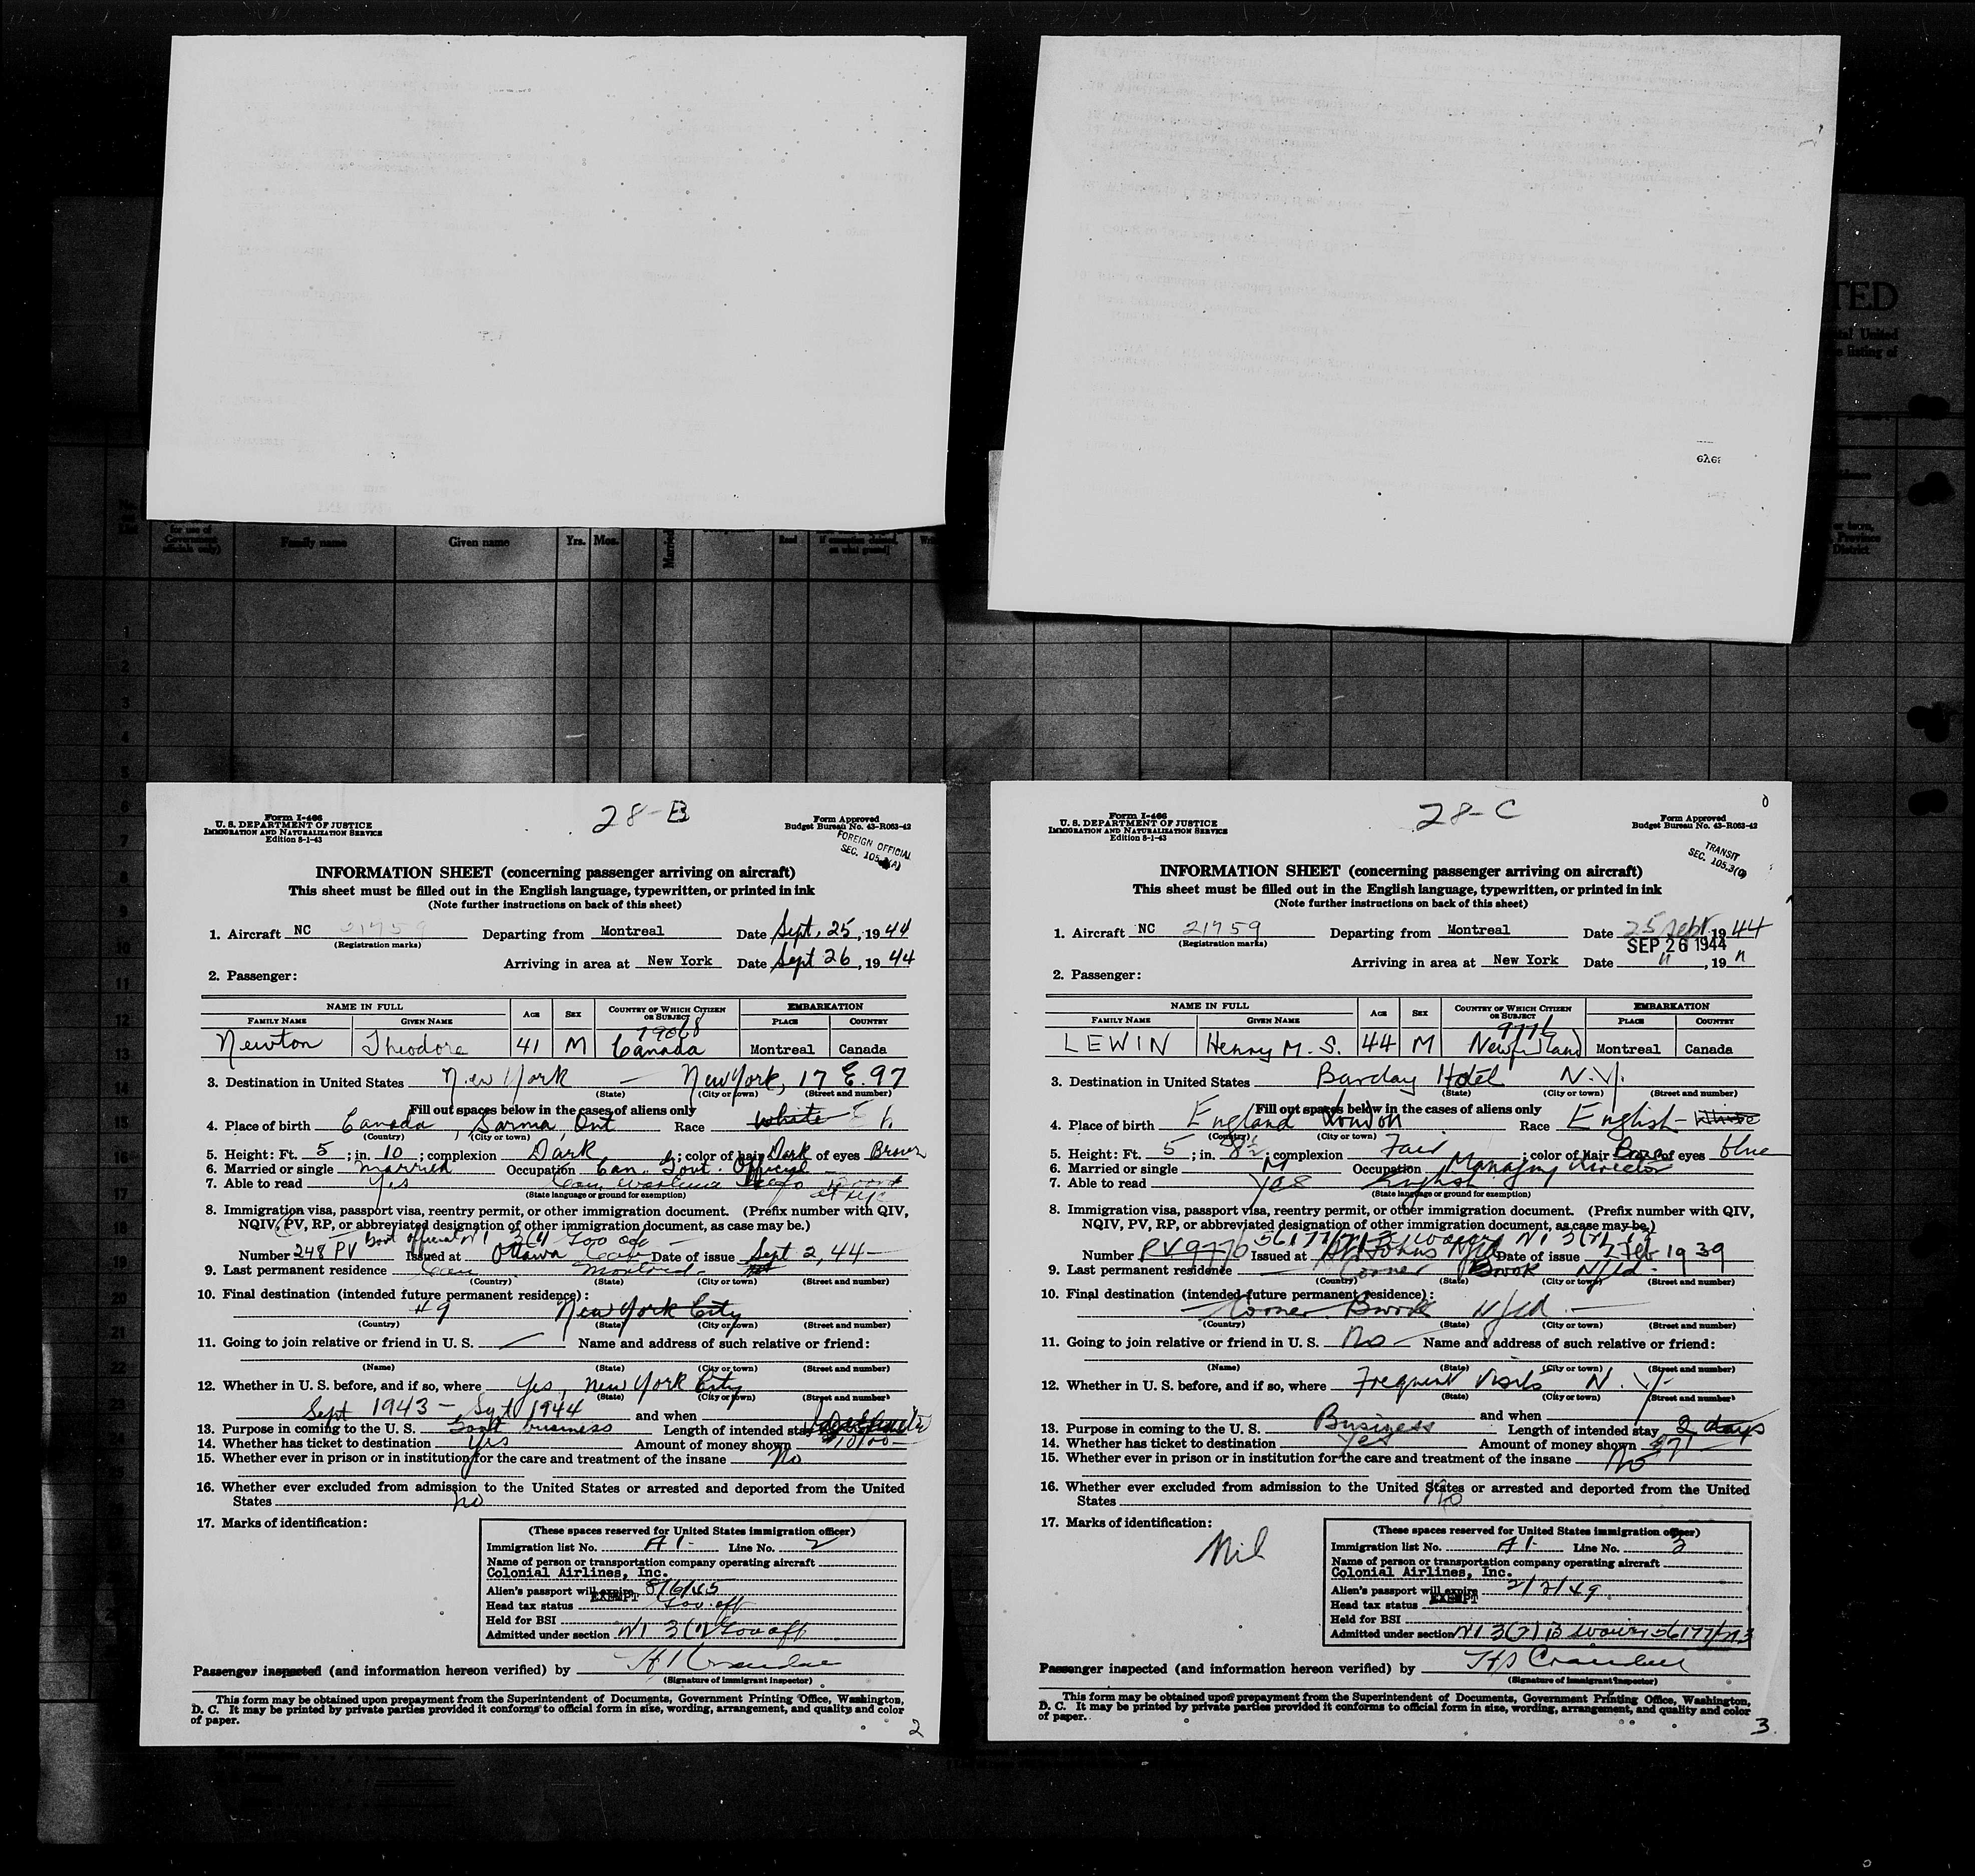 TED
tal United
listing of
for use of
Government
officials only)
Family name
Given name
Yrs.
Mos.
Married
Read
If exemption claimed,
on what ground
or town,
Province
District
1
2
3
4
5
6
7
8
9
10
11
12
13
14
15
16
17
18
19
20
21
22
23
Form I-466
U. S. DEPARTMENT OF JUSTICE
IMMIGRATION AND NATURALIZATION SERVICE
Edition 8-1-43
28-B
Form Approved
Budget Bureau No. 43-R063-42
FOREIGN OFFICIAL
SEC. 105.3(A)
INFORMATION SHEET (concerning passenger arriving on aircraft)
This sheet must be filled out in the English language, typewritten, or printed in ink
(Note further instructions on back of this sheet)
1. Aircraft NC 21759 Departing from Montreal Date Sept. 25, 19 44
(Registration marks)
Arriving in area at New York Date Sept 26, 19 44
2. Passenger:
NAME IN FULL AGE SEX COUNTRY OF WHICH CITIZEN OR SUBJECT EMBARKATION
FAMILY NAME GIVEN NAME PLACE COUNTRY
79068
Newton Theodore 41 M Canada Montreal Canada
3. Destination in United States New York — New York, 17 E. 97
(State) (City or town) (Street and number)
Fill out spaces below in the cases of aliens only
4. Place of birth Canada, Sarnia, Ont Race White
(Country) (City or town)
5. Height: Ft. 5; in. 10; complexion Dark; color of hair Dark of eyes Brown
6. Married or single Married Occupation Can. Govt. Official
7. Able to read Yes
(State language or ground for exemption)
8. Immigration visa, passport visa, reentry permit, or other immigration document. (Prefix number with QIV,
NQIV, PV, RP, or abbreviated designation of other immigration document, as case may be.)
Number 248 PV Issued at Ottawa Can Date of issue Sept 2, 44
9. Last permanent residence Can Montreal
(Country) (State) (City or town) (Street and number)
10. Final destination (intended future permanent residence):
#9 New York City
(Country) (State) (City or town) (Street and number)
11. Going to join relative or friend in U. S. — Name and address of such relative or friend:
(Name) (State) (City or town) (Street and number)
12. Whether in U. S. before, and if so, where Yes, New York City
(State) (City or town) (Street and number)
Sept 1943 - Sept 1944 and when
13. Purpose in coming to the U. S. Govt business Length of intended stay
14. Whether has ticket to destination Yes Amount of money shown
15. Whether ever in prison or in institution for the care and treatment of the insane No
16. Whether ever excluded from admission to the United States or arrested and deported from the United
States no
17. Marks of identification:
(These spaces reserved for United States immigration officer)
Immigration list No. A1- Line No. 2
Name of person or transportation company operating aircraft
Colonial Airlines, Inc.
Alien's passport will expire 8/6/45
Head tax status EXEMPT Gov. off
Held for BSI
Admitted under section N1 3(1) Gov off
Passenger inspected (and information hereon verified) by
(Signature of immigrant inspector)
This form may be obtained upon prepayment from the Superintendent of Documents, Government Printing Office, Washington,
D. C. It may be printed by private parties provided it conforms to official form in size, wording, arrangement, and quality and color
of paper.
2
Form I-466
U. S. DEPARTMENT OF JUSTICE
IMMIGRATION AND NATURALIZATION SERVICE
Edition 8-1-43
28-C
Form Approved
Budget Bureau No. 43-R063-42
TRANSIT
SEC. 105.3(C)
INFORMATION SHEET (concerning passenger arriving on aircraft)
This sheet must be filled out in the English language, typewritten, or printed in ink
(Note further instructions on back of this sheet)
1. Aircraft NC 21759 Departing from Montreal Date 25 Sept 19 44
(Registration marks)
SEP 26 1944
Arriving in area at New York Date " , 19 "
2. Passenger:
NAME IN FULL AGE SEX COUNTRY OF WHICH CITIZEN OR SUBJECT EMBARKATION
FAMILY NAME GIVEN NAME PLACE COUNTRY
9776
LEWIN Henry M. S. 44 M Newfndland Montreal Canada
3. Destination in United States Barclay Hotel N.Y.
(State) (City or town) (Street and number)
Fill out spaces below in the cases of aliens only
4. Place of birth England London Race English - White
(Country) (City or town)
5. Height: Ft. 5; in. 8½; complexion Fair; color of hair of eyes blue
6. Married or single M Occupation Managing Director
7. Able to read Yes English
(State language or ground for exemption)
8. Immigration visa, passport visa, reentry permit, or other immigration document. (Prefix number with QIV,
NQIV, PV, RP, or abbreviated designation of other immigration document, as case may be.)
Number PV 9770 Issued at St Johns Nfld Date of issue 2 Feb 1939
9. Last permanent residence Corner Brook Nfld.
(Country) (State) (City or town) (Street and number)
10. Final destination (intended future permanent residence):
Corner Brook Nfld.
(Country) (State) (City or town) (Street and number)
11. Going to join relative or friend in U. S. No Name and address of such relative or friend:
(Name) (State) (City or town) (Street and number)
12. Whether in U. S. before, and if so, where Frequent Visits N.Y.
(State) (City or town) (Street and number)
and when
13. Purpose in coming to the U. S. Business Length of intended stay 2 days
14. Whether has ticket to destination Yes Amount of money shown $71
15. Whether ever in prison or in institution for the care and treatment of the insane No
16. Whether ever excluded from admission to the United States or arrested and deported from the United
States No
17. Marks of identification: Nil
(These spaces reserved for United States immigration officer)
Immigration list No. A1- Line No. 3
Name of person or transportation company operating aircraft
Colonial Airlines, Inc.
Alien's passport will expire 2/2/49
Head tax status EXEMPT
Held for BSI
Admitted under section N1 3(2) B waiver 56177/713
Passenger inspected (and information hereon verified) by
(Signature of immigrant inspector)
This form may be obtained upon prepayment from the Superintendent of Documents, Government Printing Office, Washington,
D. C. It may be printed by private parties provided it conforms to official form in size, wording, arrangement, and quality and color
of paper.
3